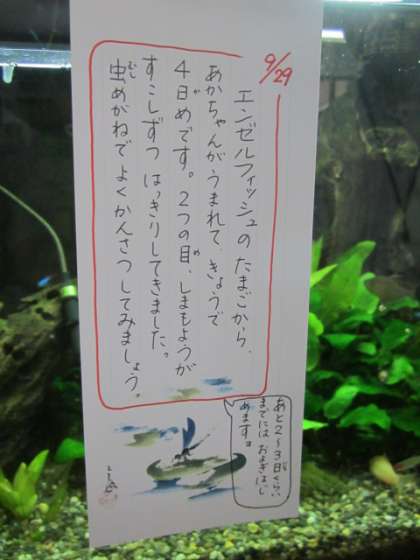 9/29
エンゼルフィッシュの たまごから、
あかちゃんが うまれて、きょうで
4日めです。2つの目、しまもようが
すこしずつ はっきりしてきました。
虫めがねで よく かんさつ してみましょう。
あと2〜3日くらい
までには およぎはじ
めます。